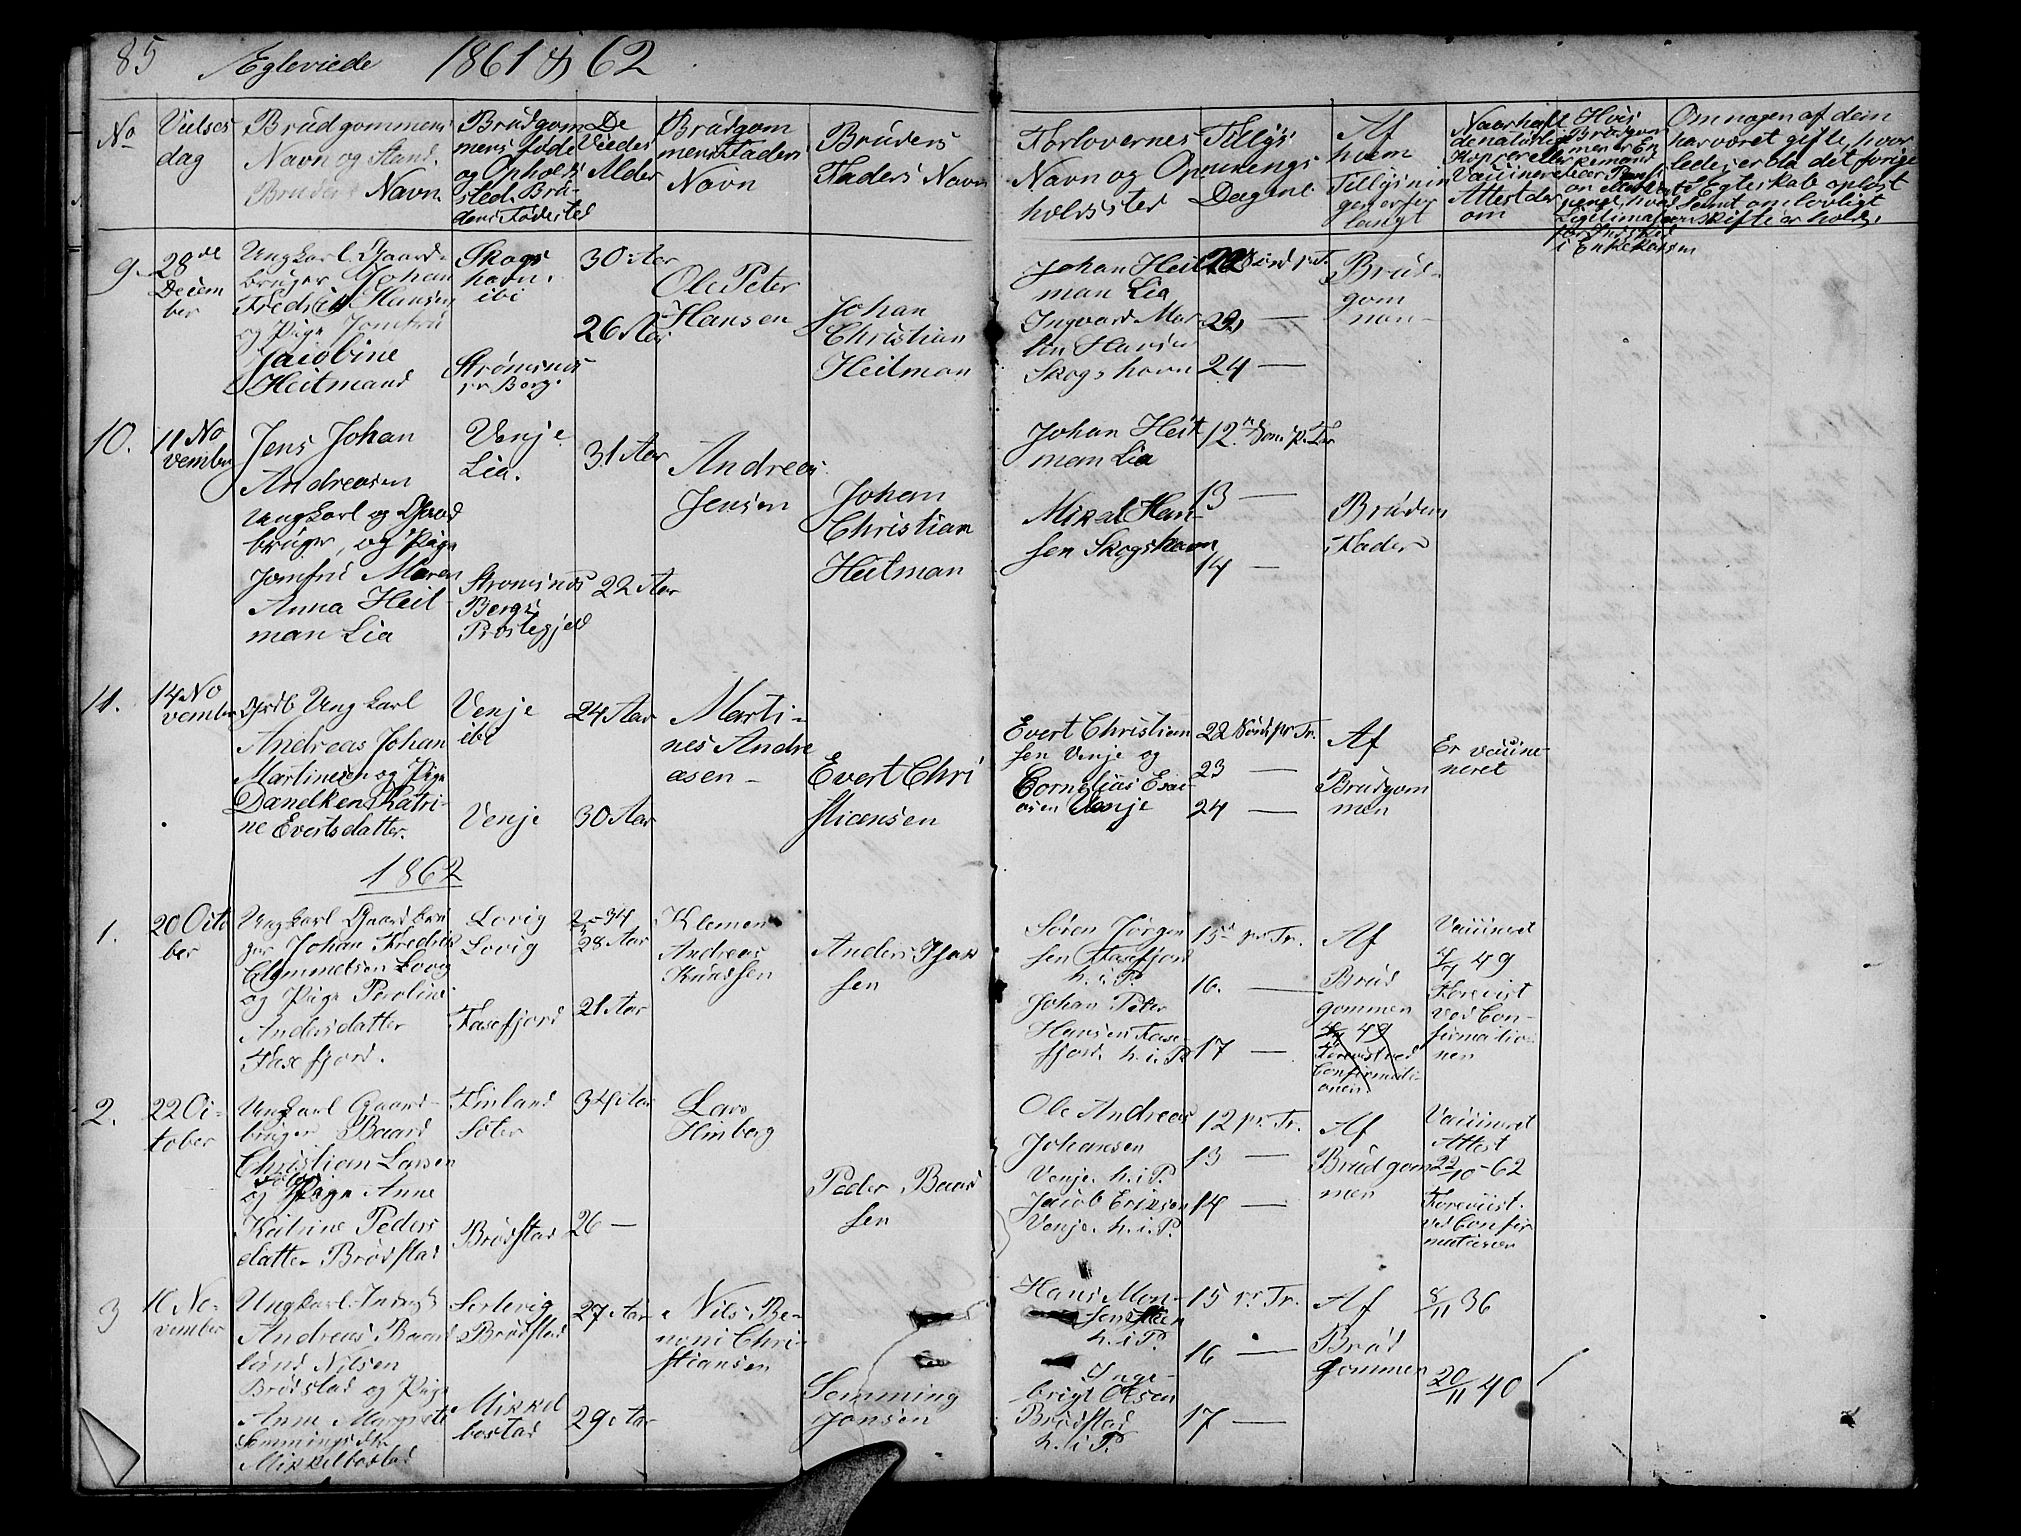 85 Egteviede 1861 & 62
No
Vielses
dag
Brudgommens
Navn og Stand.
Brudens Navn.
Brudgom
mens Føde
og Opholds
sted. Bru-
dens Fødested
De
Viedes
Alder
Brudgom
mens Faders
Navn
Brudens
Faders Navn
Forlovernes
Navn og Op
holdssted
Tillys
ningens
Dagene
Af
hvem
Tillysnin
gen er for
langt
Naar hafft
de naturlige
Kopper eller
Vaccineret
Attest der
om
Hvis
Brudgom
men er En
kemand
i Enkekassen
Om nogen af dem
har været gifte, hvor
ledes er da det forige
Egteskab opløst
samt om lovligt
Skifte er holdt.
9.
28de
Decem
ber
Ungkarl Gaard-
bruger Johan
Fredrik Hansen
og Pige Jomfru
Jacobine
Heitmand
Skogs
havn.
ibi
Strømsnes
pr Berg.
30 Aar
26 Aar
Ole Peter
Hansen
Johan
Christian
Heitman
Johan Heit
man Lia
Ingvard Mar
tin Hansen
Skogshavn
22 Sønd p. T.
22 —
24 —
Brud-
gom
men —
10.
11 No
vember
Jens Johan
Andreasen
Ungkarl og Gaard
bruger, og Pige
Jomfru Maren
Anna Heit
man Lia
Venje
Lia.
Strømsnes
Bergs
Præstegjeld
31 Aar
22 Aar
Andreas
Jensen
Johan
Christian
Heitman
Johan Heit
man Lia
Mikal Han-
sen Skogshavn
12. Søn. p. Tr
13 —
14 —
Brudens
Fader
11.
14 No
vember
Ungkarl
Andreas Johan
Martinesen og Pige
Danelken Katri-
ne Evertsdatter.
Venje
ibi
Venje
24 Aar
30 Aar
Marti-
nes Andre
asen —
Evert Chri
stiansen
Evert Christian
sen Venje og
Cornelius Esai-
asen Venje
22 Sønd pr Tr.
23 —
24 —
Af
Brudgom
men
Er vaccine-
neret
1862
1.
20 Octo
ber
Ungkarl Gaardbru
ger Johan Fredrik
Clemmetsen Lovig
og Pige Paroline
Andersdatter
Faxefjord.
Lovig
Lovig
Faxefjord
28 Aar
21 Aar
Klemen
Andreas
Knudsen
Anders Isak
sen
Søren Jørgen
sen Faxefjord
h. i P.
Johan Peter
Hansen Faxe-
fjord. h. i. P.
15 pr Tr.
16. —
17 —
Af
Brud
gommen
49
Forevist ved
Confirmati-
onen
Vaccineret
4/7 49
Forevist
ved Con-
firmatio-
nen
2.
22 Oc-
tober
Ungkarl Gaard-
bruger Baard
Christian Larsen
og Pige Anne
Katrine Peders
datter Brødstad
Finland
Søter
Brødstad
34 Aar
26 —
Lars
Himberg
Peder Baard
sen
Ole Andreas
Johansen
Venje. h. i P.
Jacob Eriksen
Venje. h. i P.
12 pr. Tr.
13 —
14 —
Af
Brudgom
men
Vaccineret
Attest
22/10 - 62
Foreviist
ved Confir
mationen
3
10 No-
vember
Ungkarl Inderst
Andreas Baard
lund Nilsen
Brødstad og Pige
Anne Margrete
Semmingsdtr
Mikkelbostad
Serlevig
Brødstad
Mikkel
bostad
27 Aar
29 Aar
Nils Be-
noni Chri-
stiansen
Semming
Jonsen
Hans Mon-
sen Steen
h. i P.
Inge-
brigt Olsen
Brødstad
h. i P.
15 pr Tr.
16 —
17 —
Af
Brud
gommen
8/11 36
20/11 40